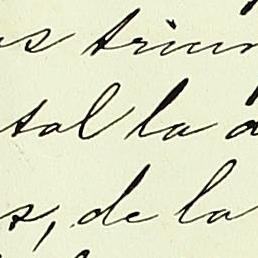 os triun
tal la a
s, de la